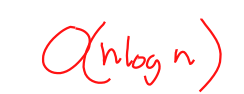 O(nlog n)